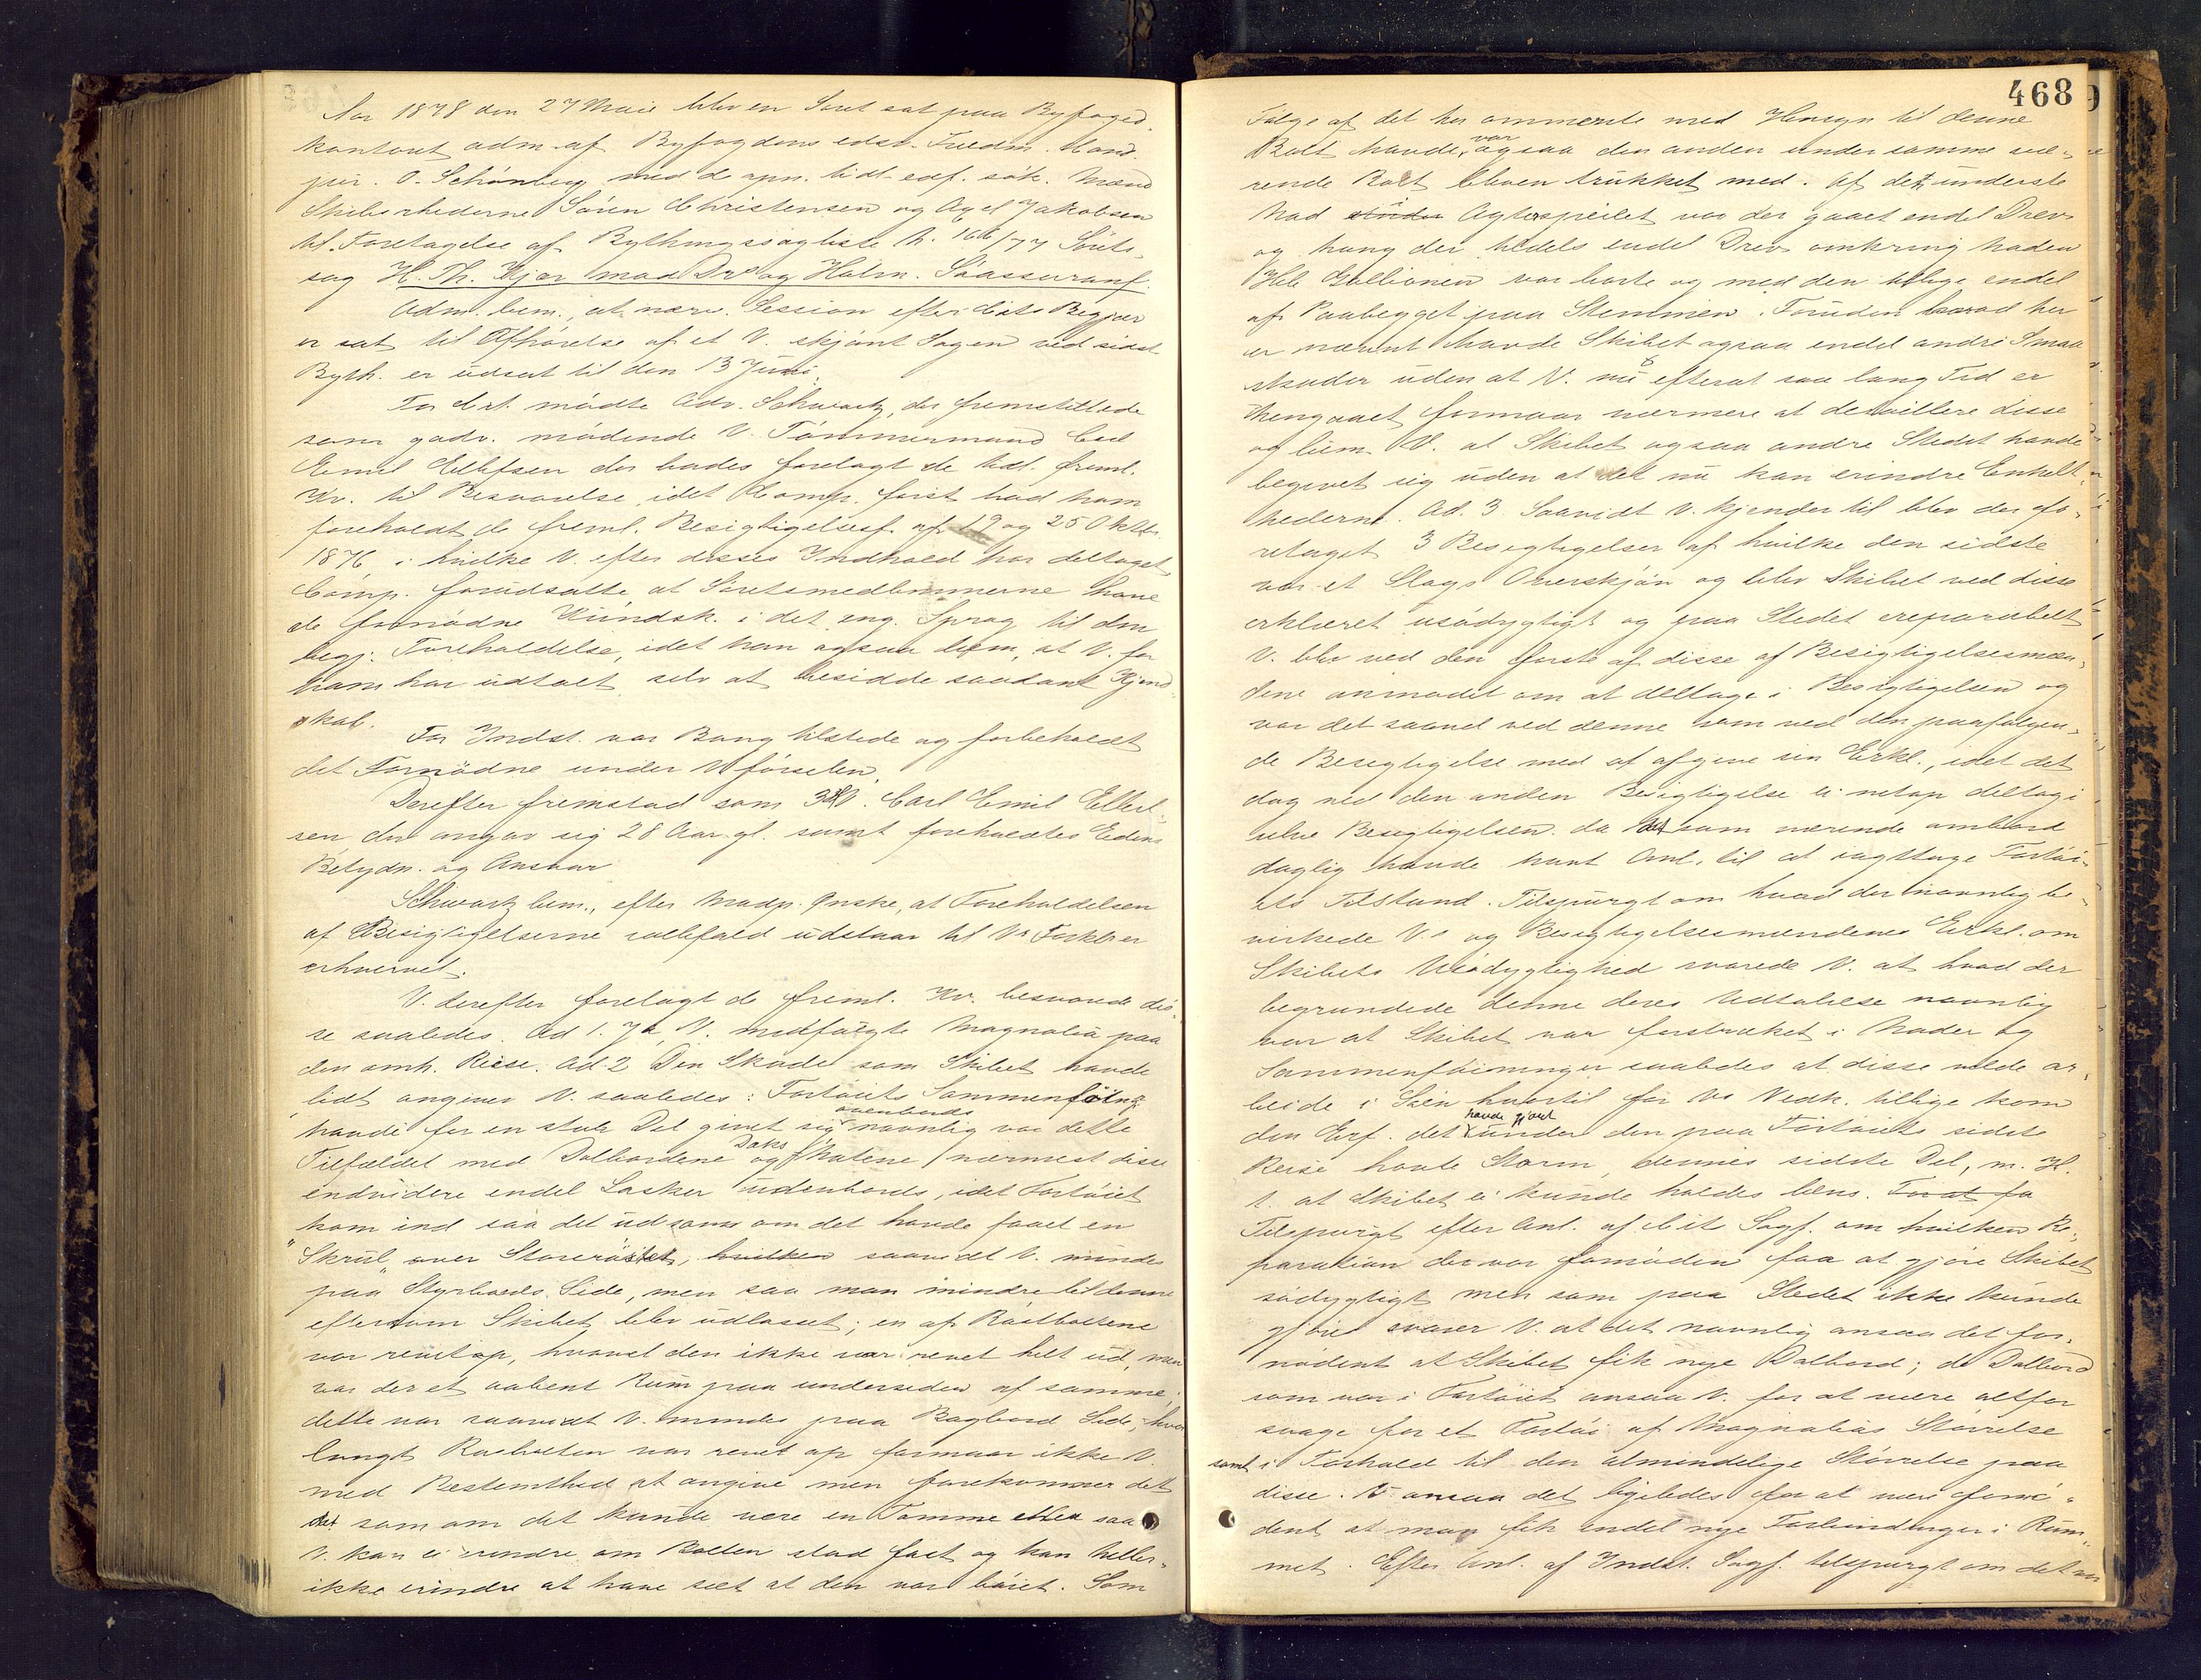 Aar 1878 den 27 Maie blev en Soret sat paa Byfoged-
kontoret adm. af Byfogdens edsv. Fuldm. Cand.
jur. O. Schönberg med de opn. tidl. edf. sök. Mænd
Skibsrhederne Sören Christensen og Axel Jakobsen
til Foretagelse af Bythingssagliste N. 166/77 Söret-
sag H. Th. Kjær mod Dr. og Holm. Söassuranf.
Adm. bem., at nærv. Session efter Cits Begjær
er sat til Afhörelse af et V. skjönt Sagen ved sidst
Byth. er udsat til den 13 Juni.
For Cit. mödte Adv. Schwartz, der fremstillede
som godv. mödende V. Tömmermand Carl
Emil Ellefsen der bades forelagt de tidl. freml.
Kv. til Besvarelse idet Comp. först bad ham
foreholdt de freml. Besigtigelsesf. af 19 og 25 Oktbr.
1876 i hvilke V. efter disses Indhold har deltaget
Comp. forudsatte at Söretsmedlemmerne have
de fornödne Kundsk. i det eng. Sprog til den
begj. Foreholdelse, idet han ogsaa bem, at V. for
ham har udtalt selv at besidde saadant Kjend-
skab.
For Indst. var Bang tilstede og forbeholdt
det Fornödne under Vförselen.
Derefter fremstod som 3die V. Carl Emil Ellef-
sen der angav sig 28 Aar gl. samt foreholdtes Edens
Betydn. og Ansvar
Schwartz bem., efter Modp. Ønske, at Foreholdelsen
af Besigtigelserne ialfald udstaar til Vs Forkl. er
erhvervet.
V. derefter forelagt de freml. Kv. besvarede dis-
se saaledes. Ad 1. Ja, V. medfulgte Magnolia paa
den omh. Reise. Ad. 2 Den Skade som Skibet havde
lidt angiver V. saaledes: Fartöiets Sammenföining
havde for en stor Del givet sig ovenbords navnlig var dette
Tilfældet med Dalbordene og Daks nærmest disse
endvidere endel Lasker udenbords, idet Fartöiet
kom ind saa det ud som om det havde faaet en
"Skrul" over Storeröstet, hvilken saavidt V. mindes
paa Styrbords Side, men saa man mindre til denne
eftersom Skibet blev udlosset; en af Röstboltene
var revet op, hvorvel den ikke var revet helt ud, men
var der et aabent Rum paa undersiden af samme;
dette var saavidt V. mindes paa Bagbord Side, hvor
langt Rösbolten var revet op formaar ikke V.
med Bestemthed at angive men forekommer det
det som om det kunde være en Tomme eller saa
V. kan ei erindre om Bolten stod fast og kan heller
ikke erindre at have seet at den var böiet. Som
468
Fölge af det her ommeldte med Hensyn til denne
Bolt havde, var ogsaa den anden under samme væ-
rende Bolt bleven trukket med. Af det underste
Nad i Agterspeilet var der gaaet endel Drev
og hang der tildels endel Drev omkring Naden
Hele Gallionen var borte og med den tillige endel
af Paabygget paa Stemmen. Foruden hvad her
er nævnt havde Skibet ogsaa endel andre Smaa
skader uden at V. nu efterat saa lang Tid er
hengaaet formaar nærmere at detaillere disse
og bem. V. at Skibet ogsaa andre Steder havde
begivet sig uden at det nu kan erindre Enkelt-
hederne. Ad. 3. Saavidt V. kjender til blev der fo-
retaget 3 Besigtigelser af hvilke den sidste
var et Slags Overskjön og blev Skibet ved disse
erklæret usödygtigt og paa Stedet ireparabelt
V. blev ved den förste af disse af Besigtigelsesmæn-
dene anmodet om at deltage i Besigtigelsen og
var det saavel ved denne som ved den paafölgen-
de Besigtigelse med at afgive sin Erkl., idet det
dog ved den anden Besigtigelse ei netop deltog i
selve Besigtigelsen da det som værende ombord
daglig havde havt Anl. til at iagttage Fartöi-
ets Tilstand. Tilspurgt om hvad der navnlig be-
virkede V.s og Besigtigelsesmændenes Erkl. om
Skibets Usödygtighed svarede V. at hvad der
begrundede denne deres Udtalelse navnlig
var at Skibet var forstrækket i Nader og
Sammenföininger saaledes at disse vilde ar-
beide i Söen hvortil for Vs Vedk. tillige kom
den Erf. det havde gjort under den paa Fartöiets sidste
Reise havte Storm, dennes sidste Del, m. H.
t. at Skibet ei kunde holdes læns. For at fa
Tilspurgt efter Anl. af Cits Sagf. om hvilken Re-
paration der var fornöden for at gjöre Skibet
södygtigt men som paa Stedet ikke kunde
gjöres svarer V. at det navnlig ansaa det for-
nödent at Skibet fik nye Dalbord; de Dalbord
som var i Fartöiet ansaa V. for at være altfor
svage for et Fartöi af Magnolias Störrelse
samt i Forhold til den almindelige Störrelse paa
disse. V. ansaa det ligeledes for at være fornö-
dent at man fik endel nye Forbindinger i Rum-
met. Efter Anl. af Indst. Sagf. tilspurgt om det var